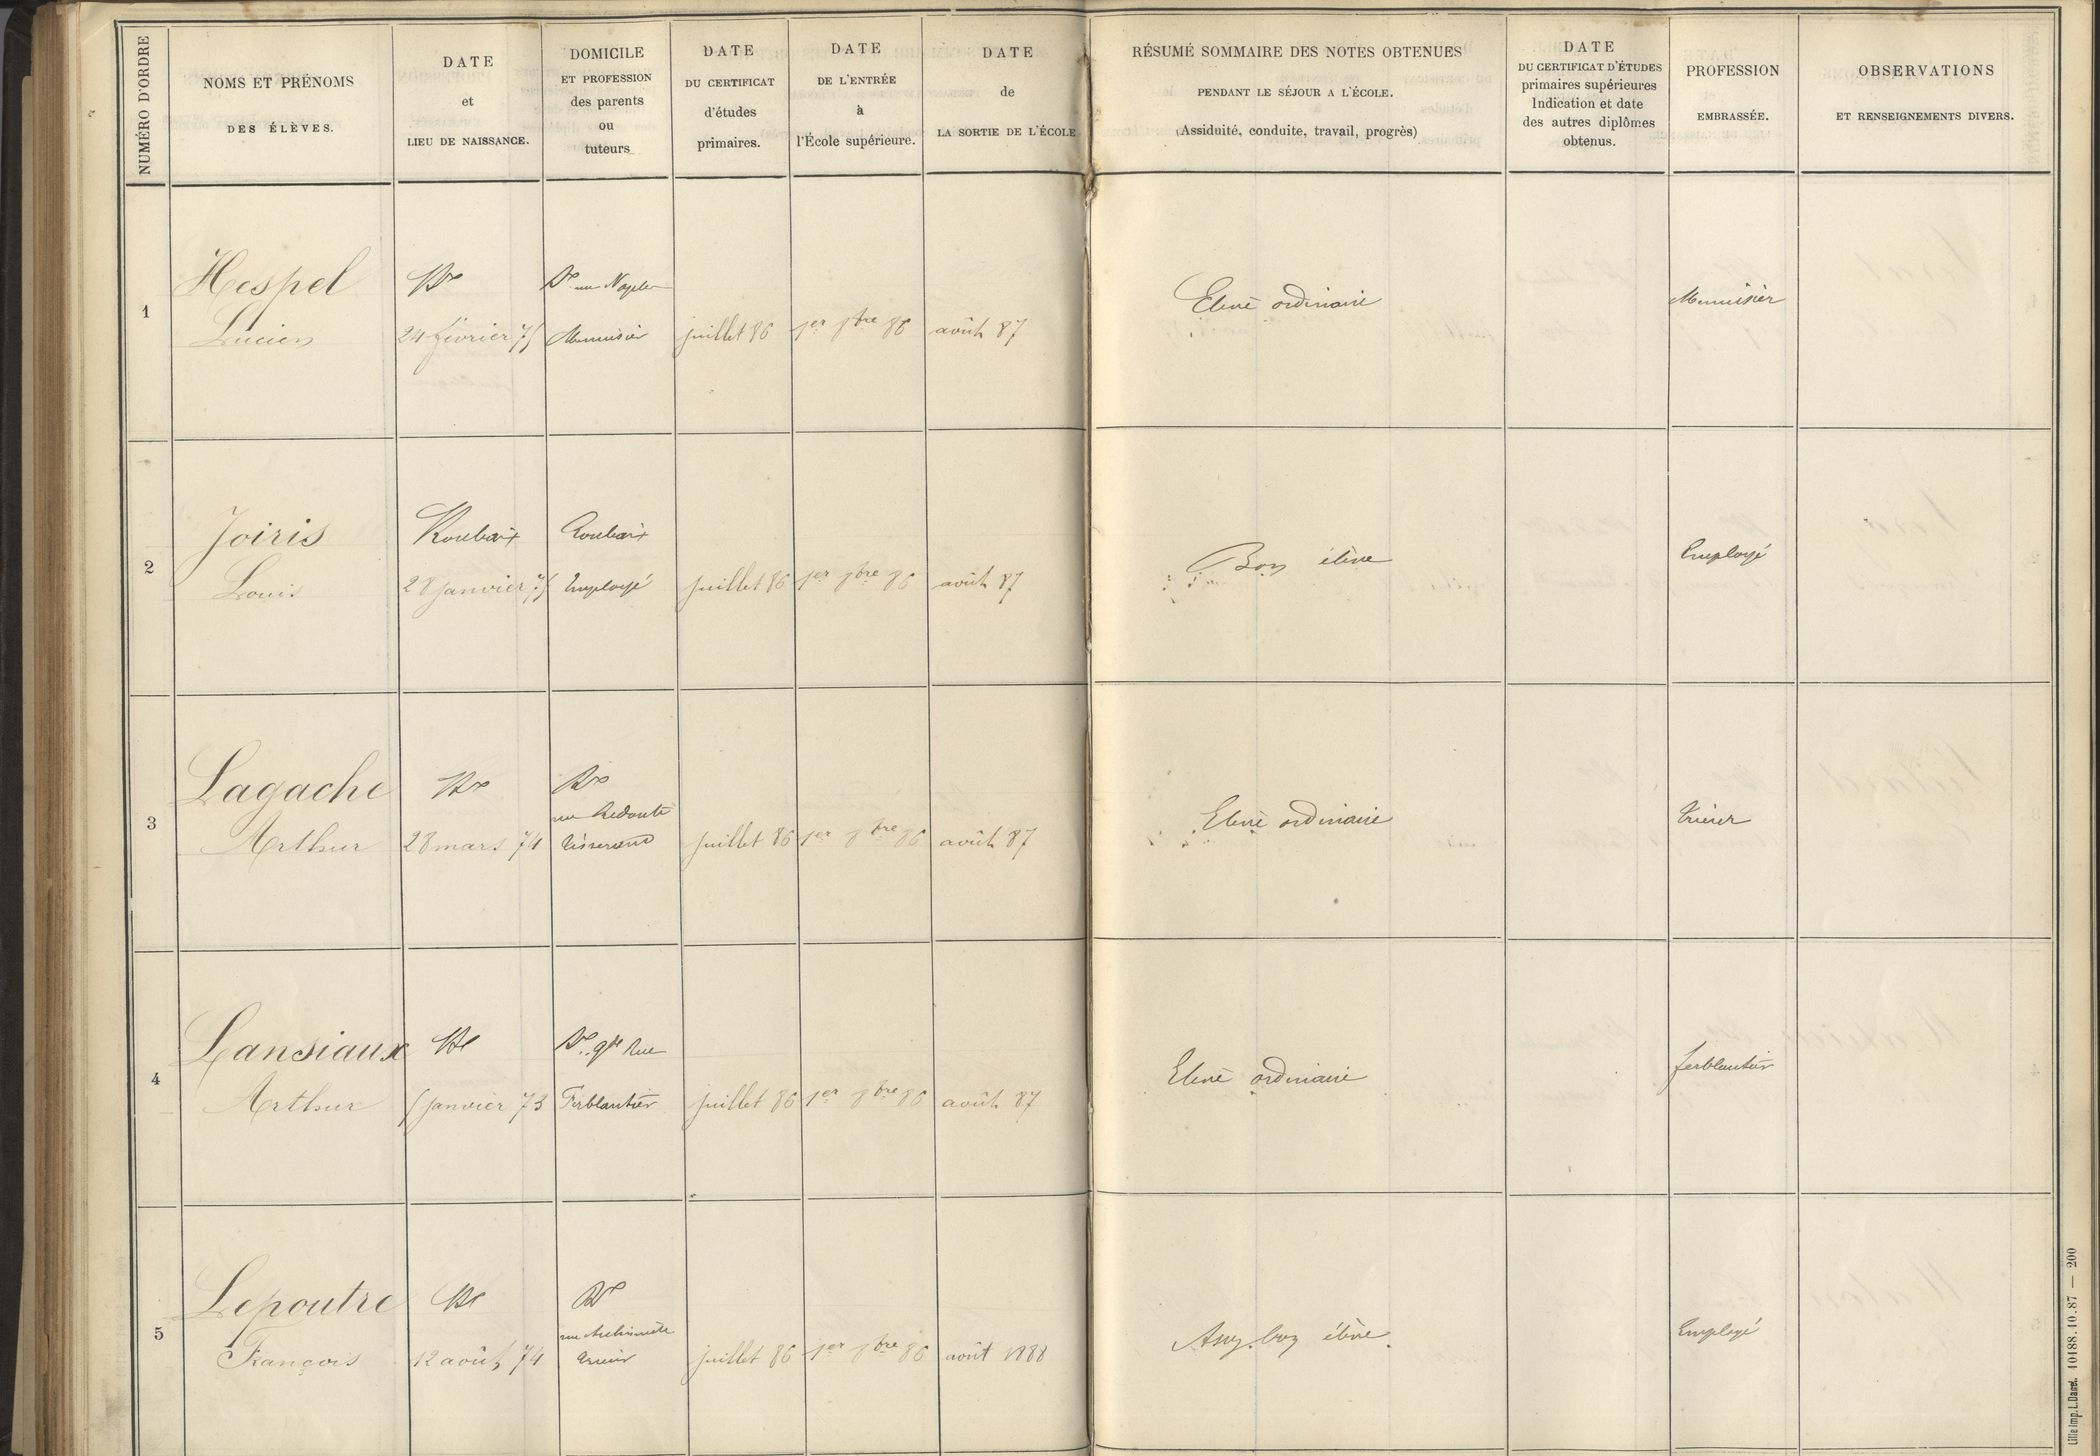 NUMÉRO D'ORDRE
NOMS ET PRÉNOMS
DES ÉLÈVES.
DATE
et
LIEU DE NAISSANCE.
DOMICILE
ET PROFESSION
des parents
ou
tuteurs
DATE
DU CERTIFICAT
d'études
primaires.
DATE
DE L'ENTRÉE
à
l'École supérieure.
DATE
de
LA SORTIE DE L'ÉCOLE
RÉSUMÉ SOMMAIRE DES NOTES OBTENUES
PENDANT LE SÉJOUR A L'ÉCOLE.
(Assiduité, conduite, travail, progrès)
DATE
DU CERTIFICAT D'ÉTUDES
primaires supérieures
Indication et date
des autres diplômes
obtenus.
PROFESSION
EMBRASSÉE.
OBSERVATIONS
ET RENSEIGNEMENTS DIVERS.
1
Hespel
Lucien
Rx
24 février 75
Rx rue
Menuisier
juillet 86
1er 8bre 86
août 87
Elève ordinaire
Menuisier
2
Joiris
Louis
Roubaix
28 janvier 75
Roubaix
Employé
juillet 86
1er 8bre 86
août 87
Bon élève
Employé
3
Lagache
Arthur
Rx
28 mars 74
Rx
rue Redoute
Tisserand
juillet 86
1er 8bre 86
août 87
Elève ordinaire
Trieur
4
Lansiaux
Arthur
Rx
5 janvier 73
Rx gde Rue
Ferblantier
juillet 86
1er 8bre 86
août 87
Elève ordinaire
ferblantier
5
Lepoutre
François
Rx
12 août 74
Rx
rue Archimède
juillet 86
1er 8bre 86
août 1888
Assez bon élève.
Employé
Lille Imp. L. Danel. 40188.10.87 — 200